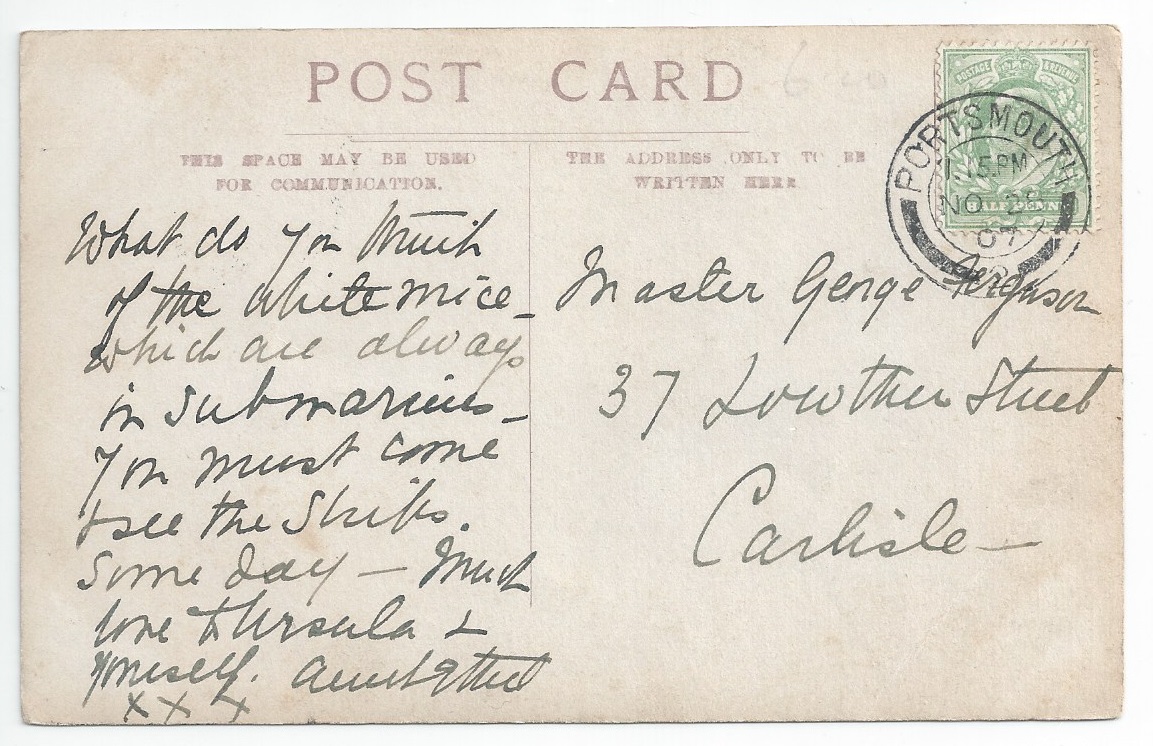 POST CARD
THIS SPACE MAY BE USED
FOR COMMUNICATION.
THE ADDRESS ONLY TO BE
WRITTEN HERE
POSTAGE & REVENUE
HALF PENNY
PORTSMOUTH
1.15.PM
NO 2
07
What do you think
of the white mice_
which are always
in submarines_
You must come
& see the Ships.
Some day — Much
love to Ursula &
yourself. Aunt Ethel
x x x
Master George Ferguson
37 Lowther Street
Carlisle —